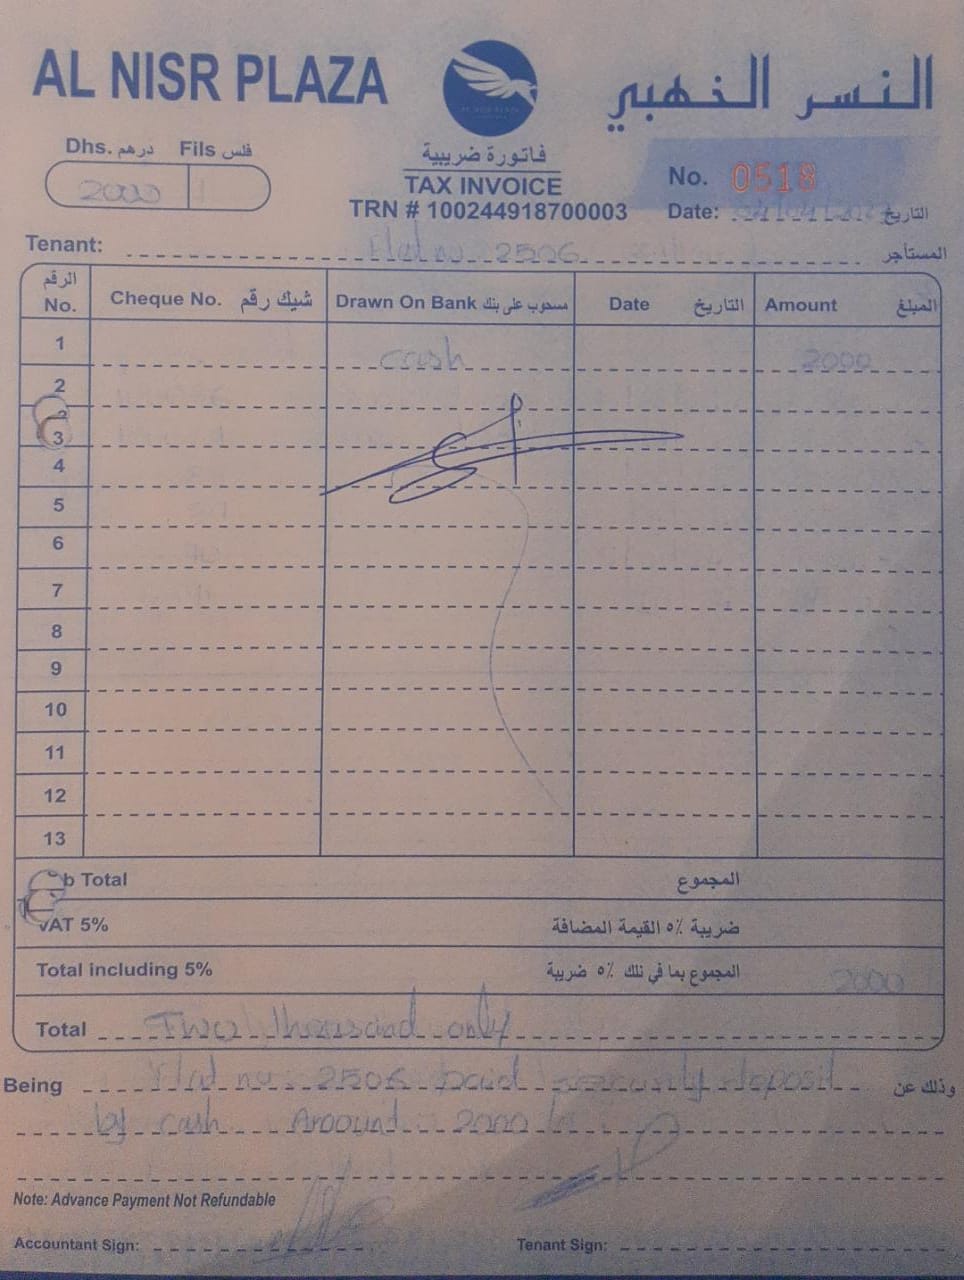 AL NISR PLAZA
النسر الذهبي
Dhs. درهم Fils فلس
2000
فاتورة ضريبية
TAX INVOICE
TRN # 100244918700003
No. 0518
Date: التاريخ
Tenant: Flat no. 2506 المستأجر
الرقم No. Cheque No. شيك رقم Drawn On Bank مسحوب على بنك Date التاريخ Amount المبلغ
1 cash 2000
2
3
4
5
6
7
8
9
10
11
12
13
b Total المجموع
VAT 5% ضريبة ٥٪ القيمة المضافة
Total including 5% المجموع بما في ذلك ٥٪ ضريبة 2000
Total Two thousand only
Being Flat no. 2506 paid security deposit وذلك عن
by cash Amount 2000
Note: Advance Payment Not Refundable
Accountant Sign: Tenant Sign: